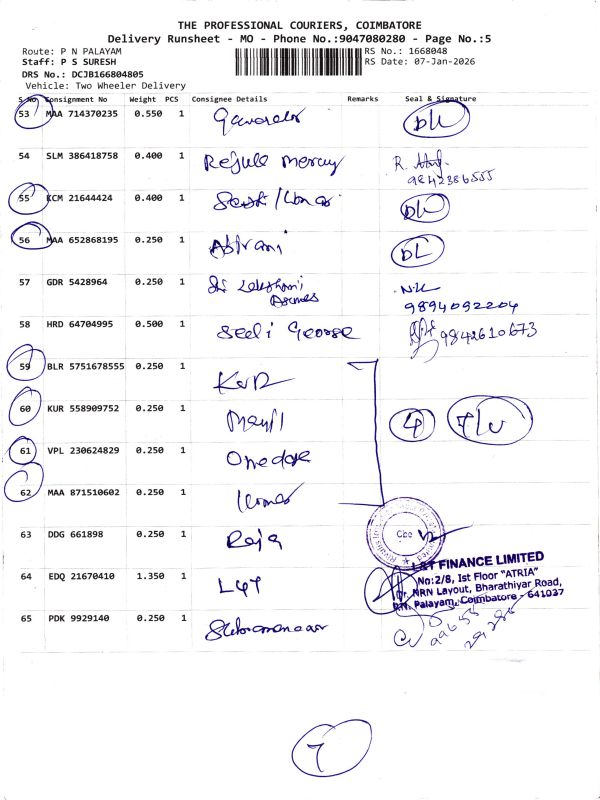 THE PROFESSIONAL COURIERS, COIMBATORE
Delivery Runsheet - MO - Phone No.:9047080280 - Page No.:5
Route: P N PALAYAM RS No.: 1668048
Staff: P S SURESH RS Date: 07-Jan-2026
DRS No.: DCJB166804805
Vehicle: Two Wheeler Delivery
S No Consignment No Weight PCS Consignee Details Remarks Seal & Signature
53 MAA 714370235 0.550 1 DL
54 SLM 386418758 0.400 1 R.
9842386555
55 KCM 21644424 0.400 1 DL
56 MAA 652868195 0.250 1 DL
57 GDR 5428964 0.250 1 Sri Lakshmi
9894092204
58 HRD 64704995 0.500 1 George 9842610673
59 BLR 5751678555 0.250 1 KVR
60 KUR 558909752 0.250 1 4
61 VPL 230624829 0.250 1
62 MAA 871510602 0.250 1
63 DDG 661898 0.250 1 Raja Cbe
64 EDQ 21670410 1.350 1 L&T
L&T FINANCE LIMITED
No:2/8, Ist Floor "ATRIA"
NRN Layout, Bharathiyar Road,
P.N. Palayam, Coimbatore - 641037
65 PDK 9929140 0.250 1
7